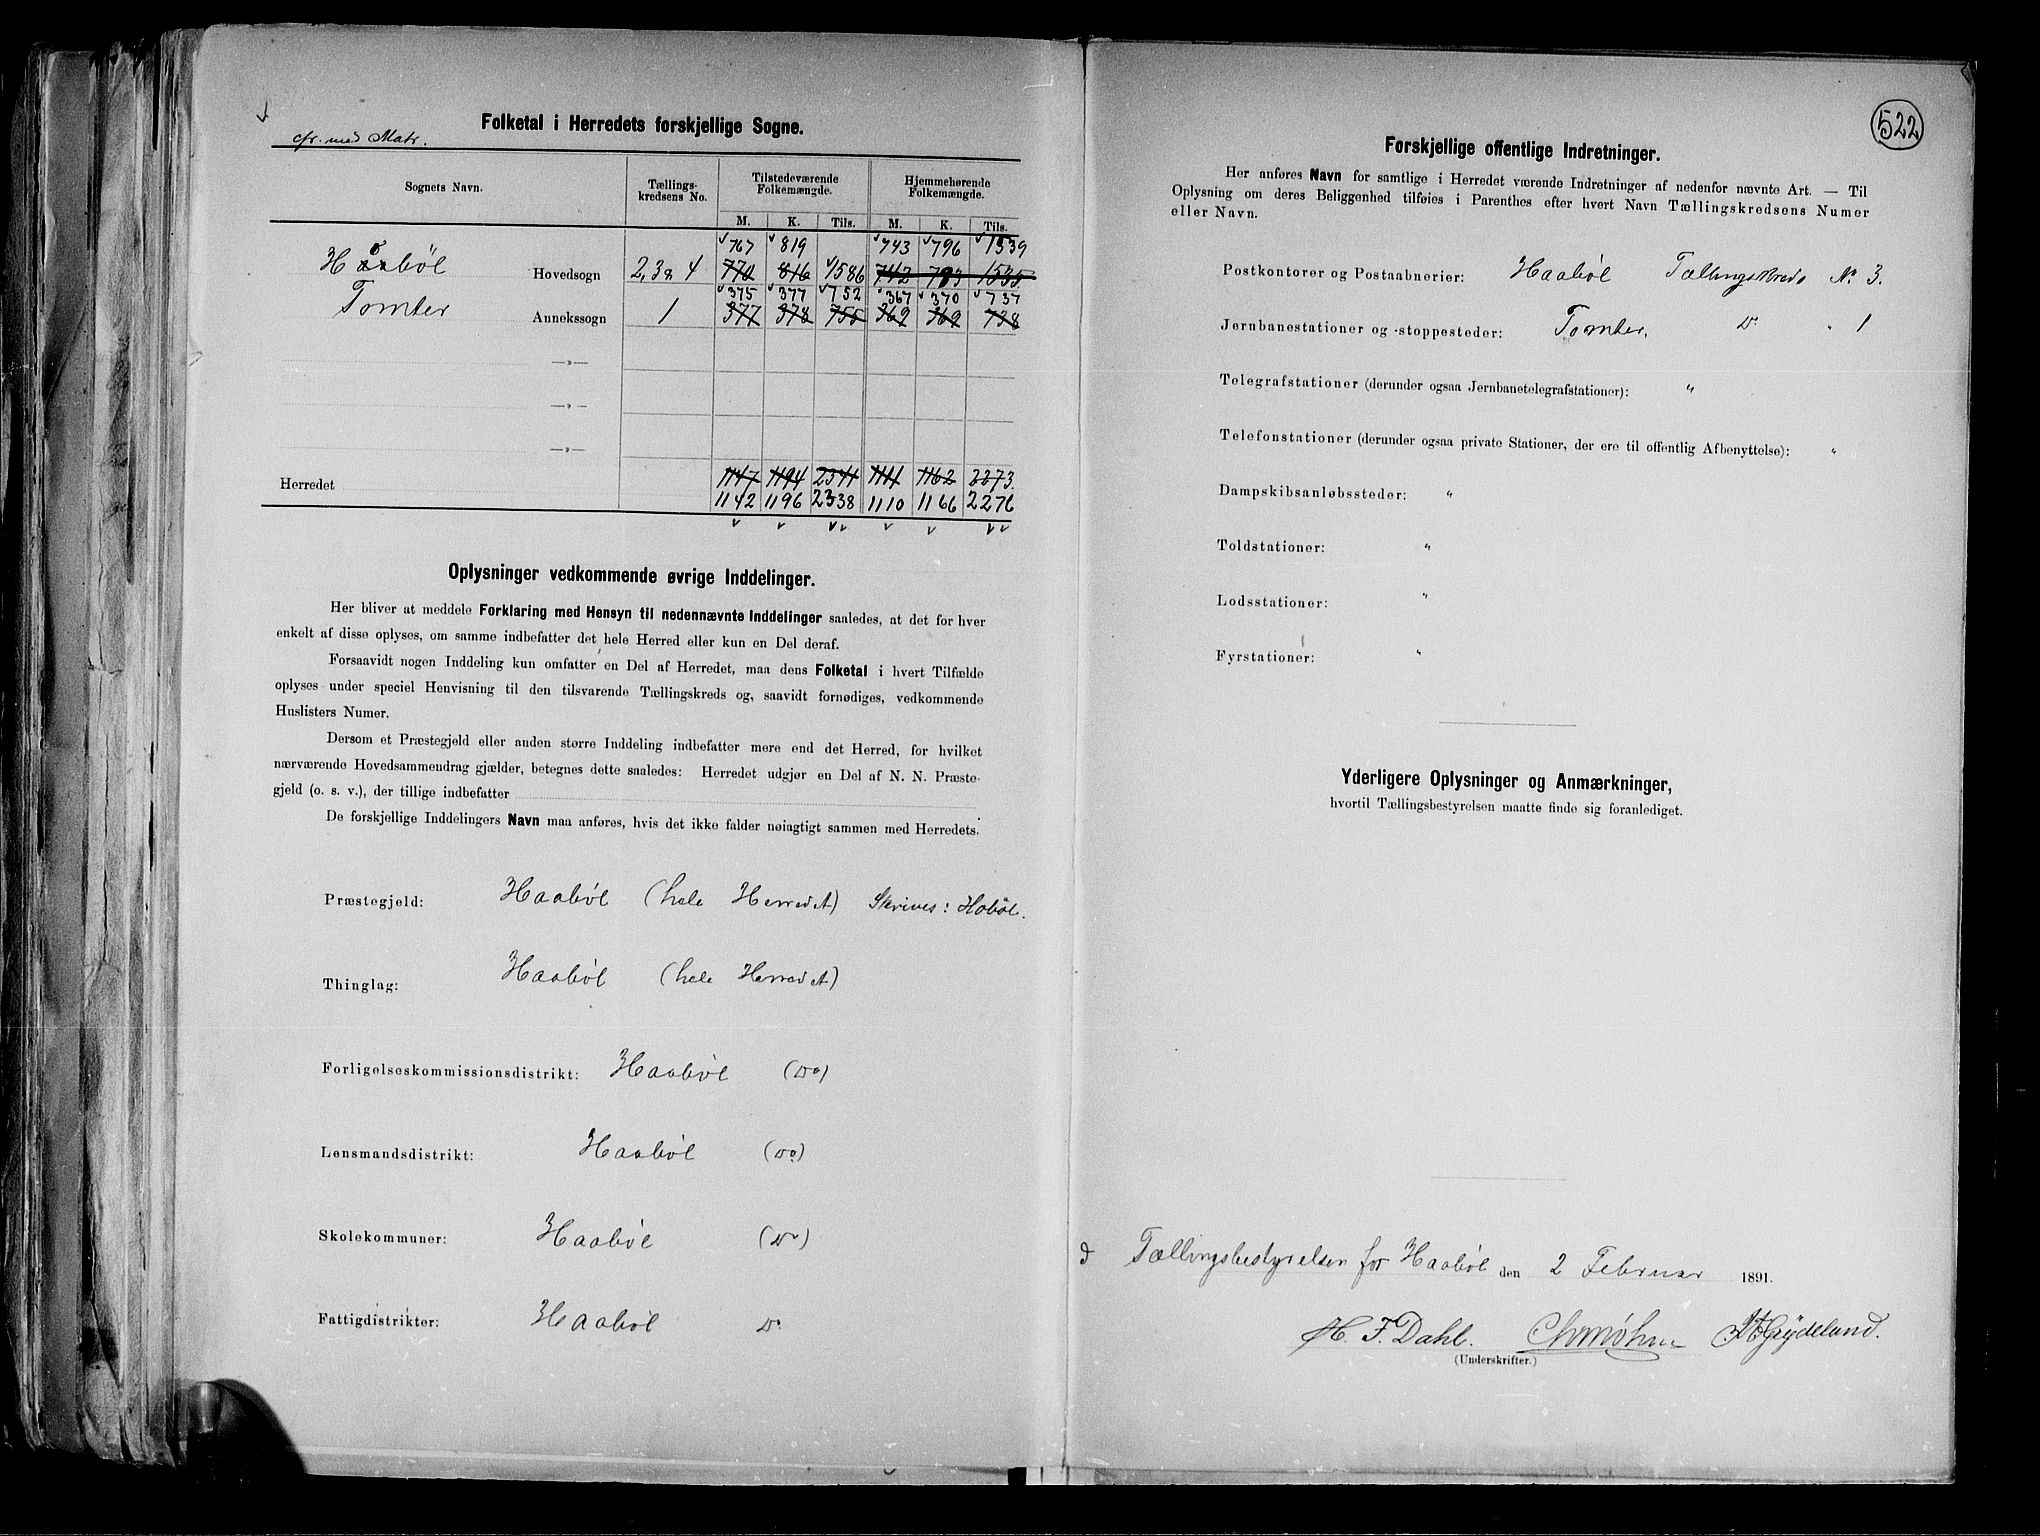 cfr. med Matr.
Folketal i Herredets forskjellige Sogne.
Sognets Navn. Tællings-kredsens No. Tilstedeværende Folkemængde. Hjemmehørende Folkemængde.
M. K. Tils. M. K. Tils.
767 819 743 796 1539
Haabøl Hovedsogn 2, 3 & 4 770 816 1586 742 793 1535
375 377 752 367 370 737
Tomter Annekssogn 1 377 378 755 369 369 738
—»—
—»—
—»—
1147 1194 2341 1111 1162 2273.
Herredet
1142 1196 2338 1110 1166 2276
Oplysninger vedkommende øvrige Inddelinger.
Her bliver at meddele Forklaring med Hensyn til nedennævnte Inddelinger saaledes, at det for hver
enkelt af disse oplyses, om samme indbefatter det hele Herred eller kun en Del deraf.
Forsaavidt nogen Inddeling kun omfatter en Del af Herredet, maa dens Folketal i hvert Tilfælde
oplyses under speciel Henvisning til den tilsvarende Tællingskreds og, saavidt fornødiges, vedkommende
Huslisters Numer.
Dersom et Præstegjeld eller anden større Inddeling indbefatter mere end det Herred, for hvilket
nærværende Hovedsammendrag gjælder, betegnes dette saaledes: Herredet udgjør en Del af N. N. Præste-
gjeld (o. s. v.), der tillige indbefatter
De forskjellige Inddelingers Navn maa anføres, hvis det ikke falder nøiagtigt sammen med Herredets.
Præstegjeld: Haabøl (hele Herredet) Skrives: Hobøl.
Thinglag: Haabøl (hele Herredet)
Forligelseskommissionsdistrikt: Haabøl (Do)
Lensmandsdistrikt: Haabøl (Do)
Skolekommuner: Haabøl (Do)
Fattigdistrikter: Haabøl Do
522
Forskjellige offentlige Indretninger.
Her anføres Navn for samtlige i Herredet værende Indretninger af nedenfor nævnte Art. — Til
Oplysning om deres Beliggenhed tilføies i Parenthes efter hvert Navn Tællingskredsens Numer
eller Navn.
Postkontorer og Postaabnerier: Haabøl Tællingskreds No. 3.
Jernbanestationer og -stoppesteder: Tomter, Do " 1
Telegrafstationer (derunder ogsaa Jernbanetelegrafstationer): "
Telefonstationer (derunder ogsaa private Stationer, der ere til offentlig Afbenyttelse): "
Dampskibsanløbssteder: "
Toldstationer: "
Lodsstationer: "
Fyrstationer: "
Yderligere Oplysninger og Anmærkninger,
hvortil Tællingsbestyrelsen maatte finde sig foranlediget.
Tællingsbestyrelsen for Haabøl den 2 Februar 1891.
H. F. Dahl. Grydeland.
(Underskrifter.)